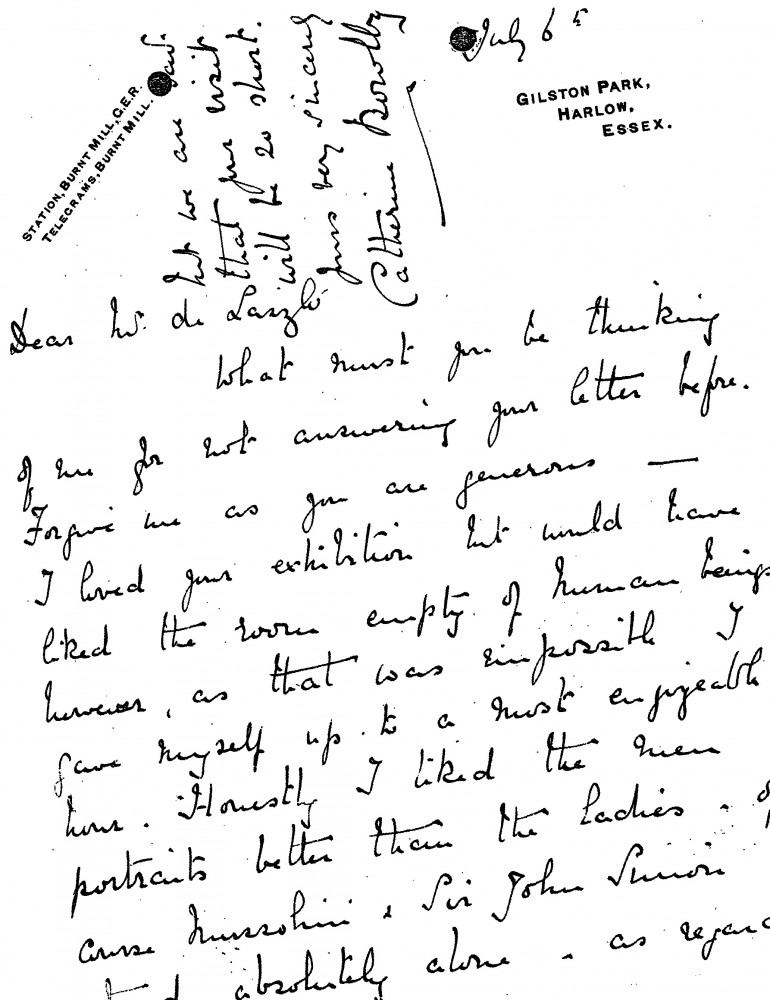 July 6th
GILSTON PARK,
HARLOW,
ESSEX.
STATION, BURNT MILL, G.E.R.
TELEGRAMS, BURNT MILL.
Dear Mr. de László
What must you be thinking
of me for not answering your letter before.
Forgive me as you are generous —
I loved your exhibition but would have
liked the room empty of human beings
however, as that was impossible I
gave myself up to a most enjoyable
hour. Honestly I liked the men
portraits better than the ladies. of
course Mussolini & Sir John Simon
absolutely alone. as regard
but we are
that your visit
will be so short.
yours very sincerely
Catherine Bowlby